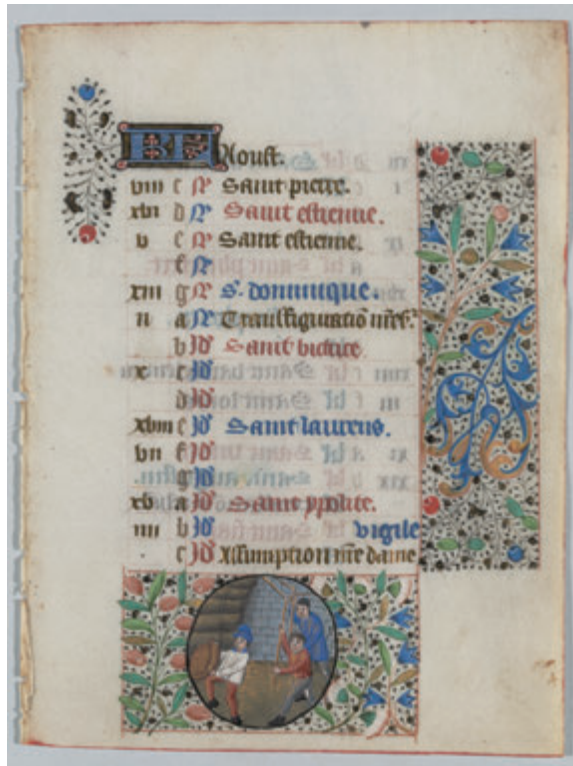 KL Aoust.
viii c N Saint pierre.
xvi d N Saint estienne.
v e N Saint estienne.
f N
xiii g N S. dominique.
ii a N Transfiguratiō
b Id Saint victice.
x c Id
d Id
xviii e Id Saint laurens.
vii f Id
g Id
xv a Id Saint ypolite.
iiii b Id vigile
c Id Assumption nre dame